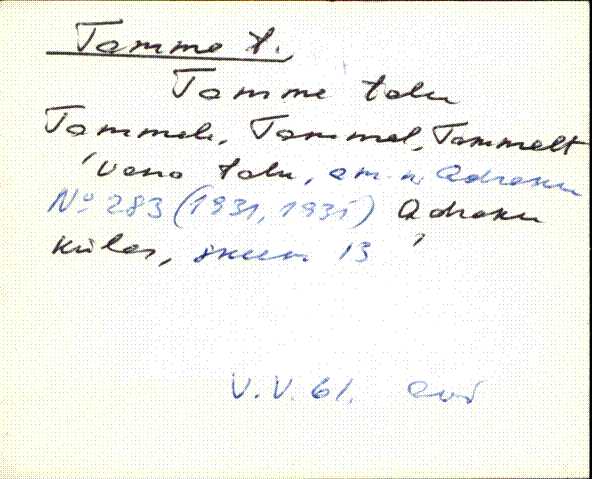 Tamme t.
Tamme talu
Tammele, Tammel, Tammelt
'vana talu, am. n. Adraku
No 283 (1931, 1935) Adraku
külas,
13
V.V. 61.